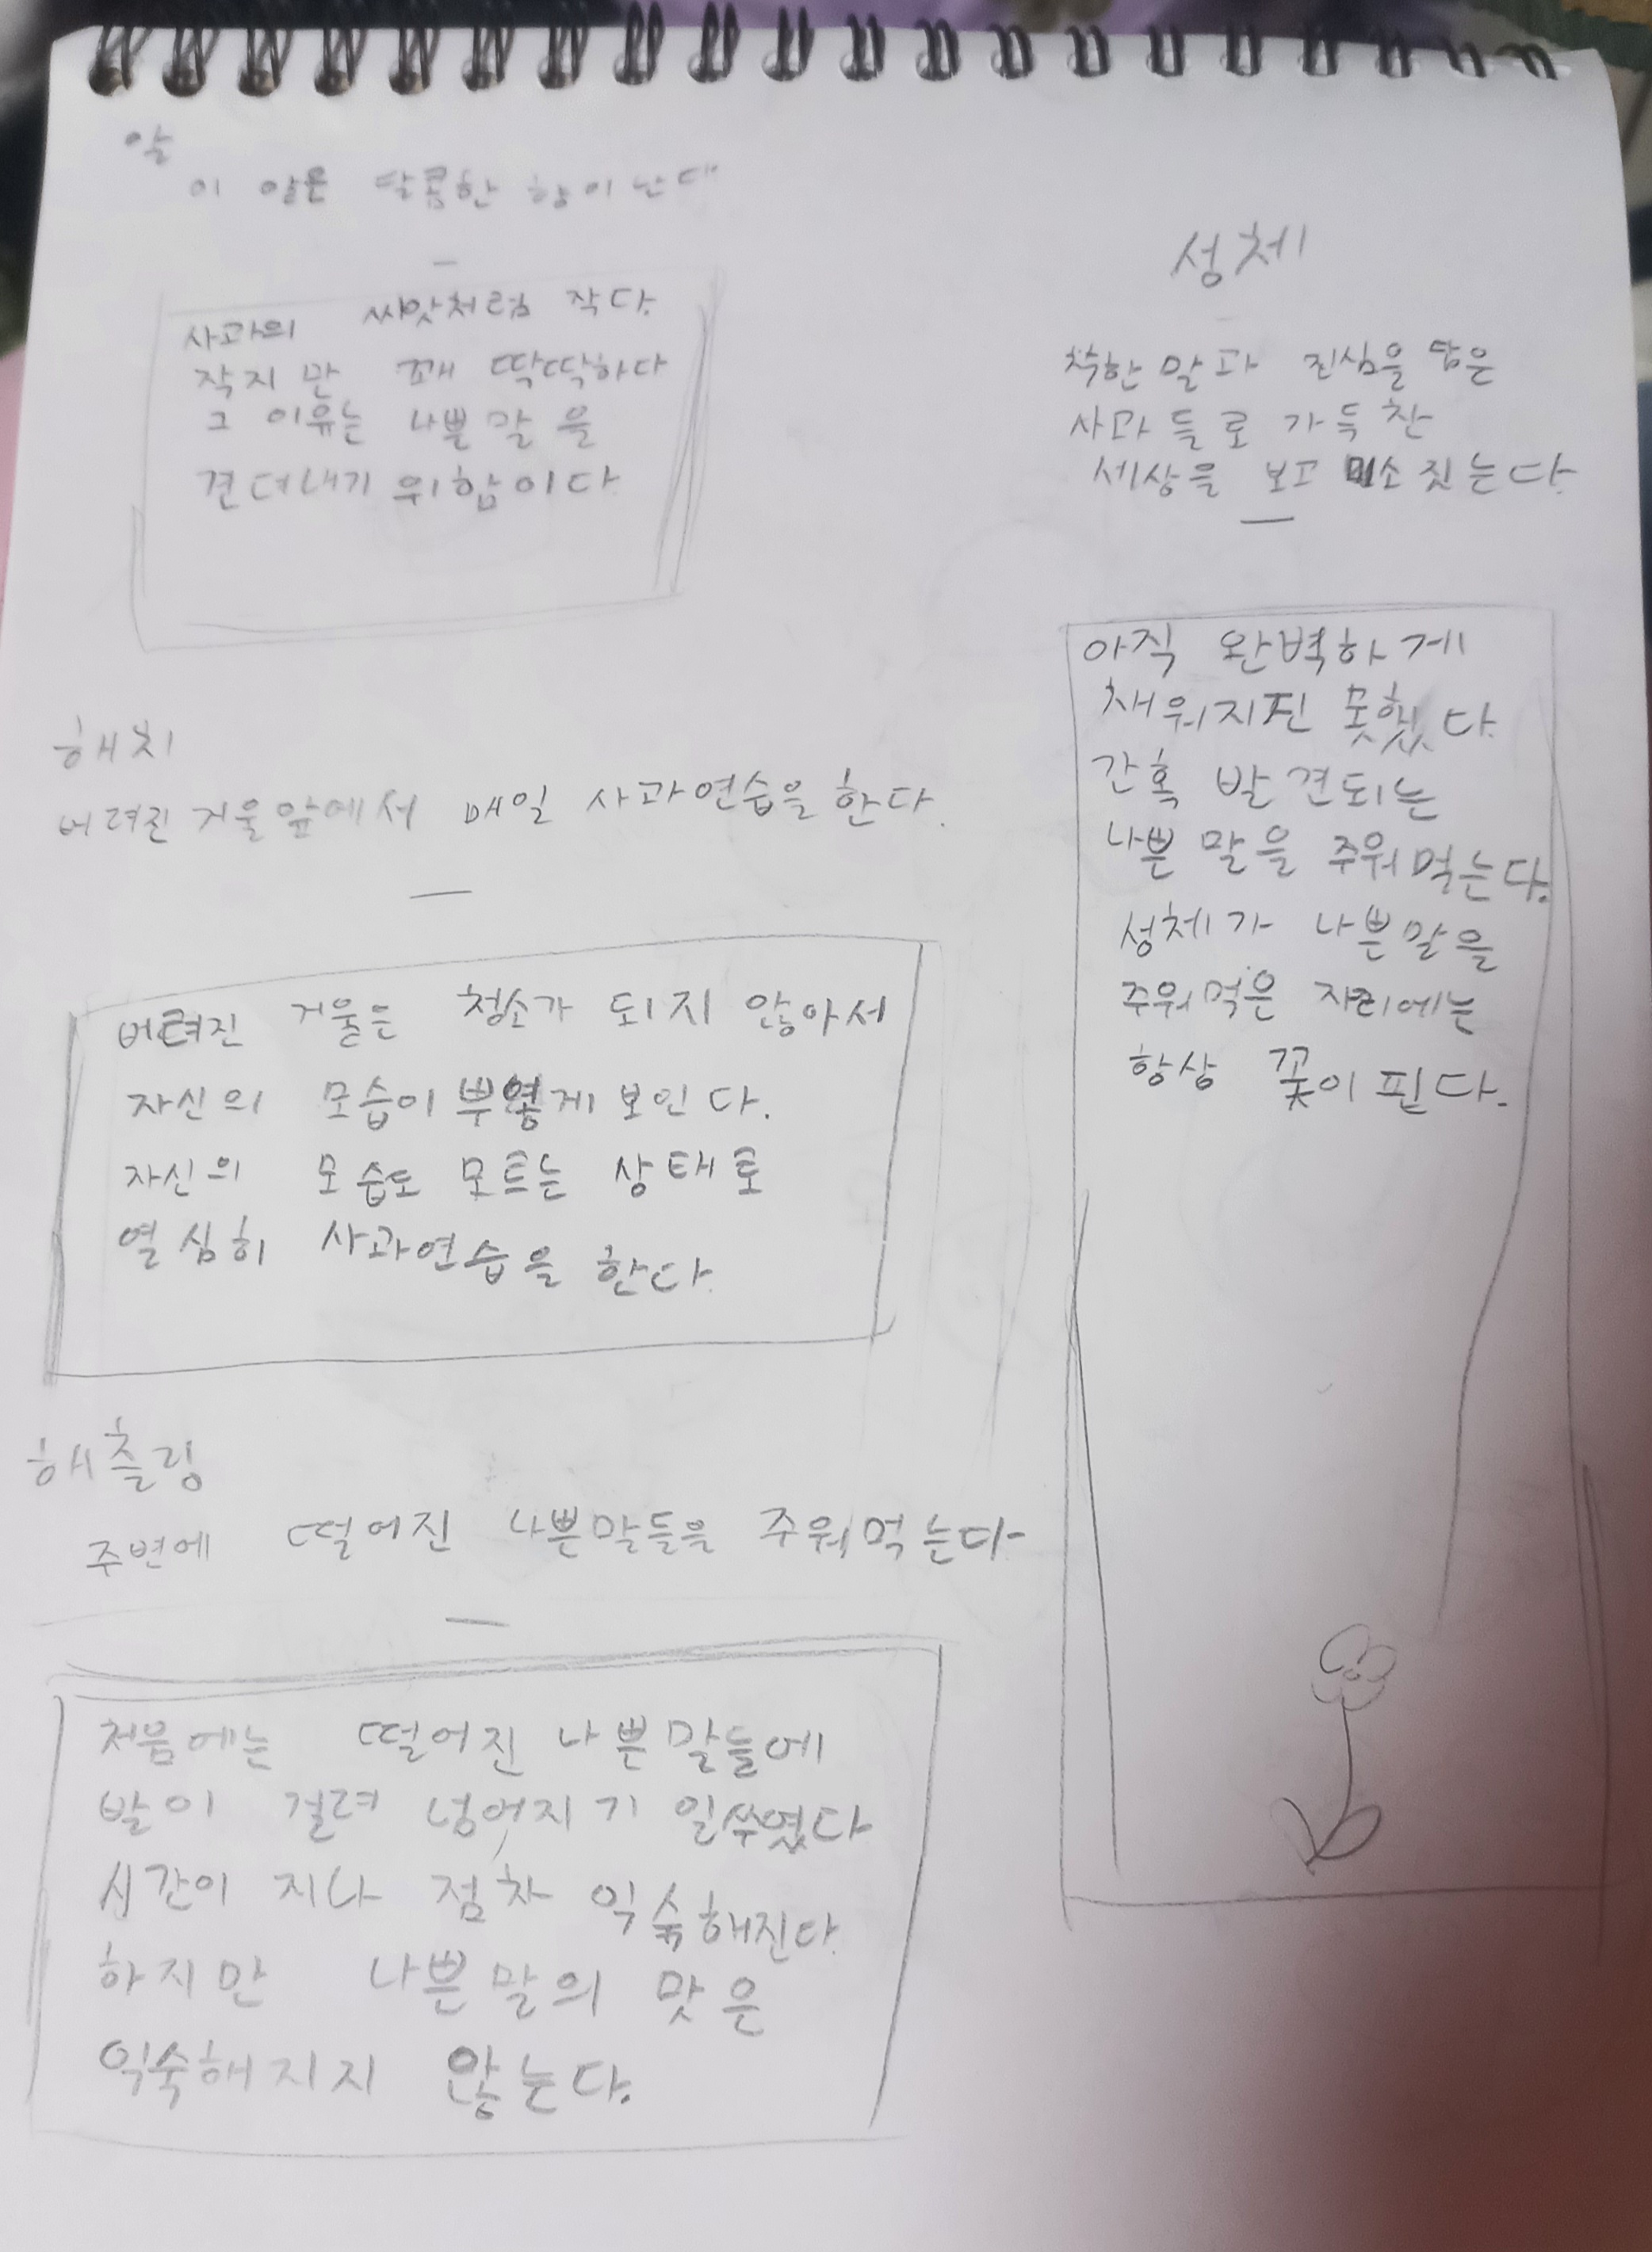 알
이 알은 달콤한 향이 난다
사과의 씨앗처럼 작다.
작지만 꽤 딱딱하다
그 이유는 나쁜말을
견뎌내기 위함이다
해치
버려진 거울앞에서 매일 사과연습을 한다.
버려진 거울은 청소가 되지 않아서
자신의 모습이 뿌옇게 보인다.
자신의 모습도 모르는 상태로
열심히 사과연습을 한다.
해츨링
주변에 떨어진 나쁜말들을 주워먹는다
처음에는 떨어진 나쁜말들에
발이 걸려 넘어지기 일쑤였다
시간이 지나 점차 익숙해진다.
하지만 나쁜말의 맛은
익숙해지지 않는다.
성체
착한말과 진심을 담은
사과들로 가득찬
세상을 보고 미소짓는다.
아직 완벽하게
채워지진 못했다.
간혹 발견되는
나쁜말을 주워먹는다.
성체가 나쁜말을
주워먹은 자리에는
항상 꽃이 핀다.